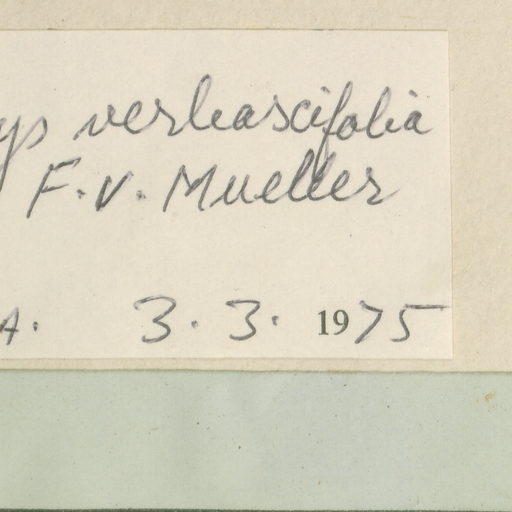 ys verbascifolia
F.v. Mueller
A. 3. 3. 1975